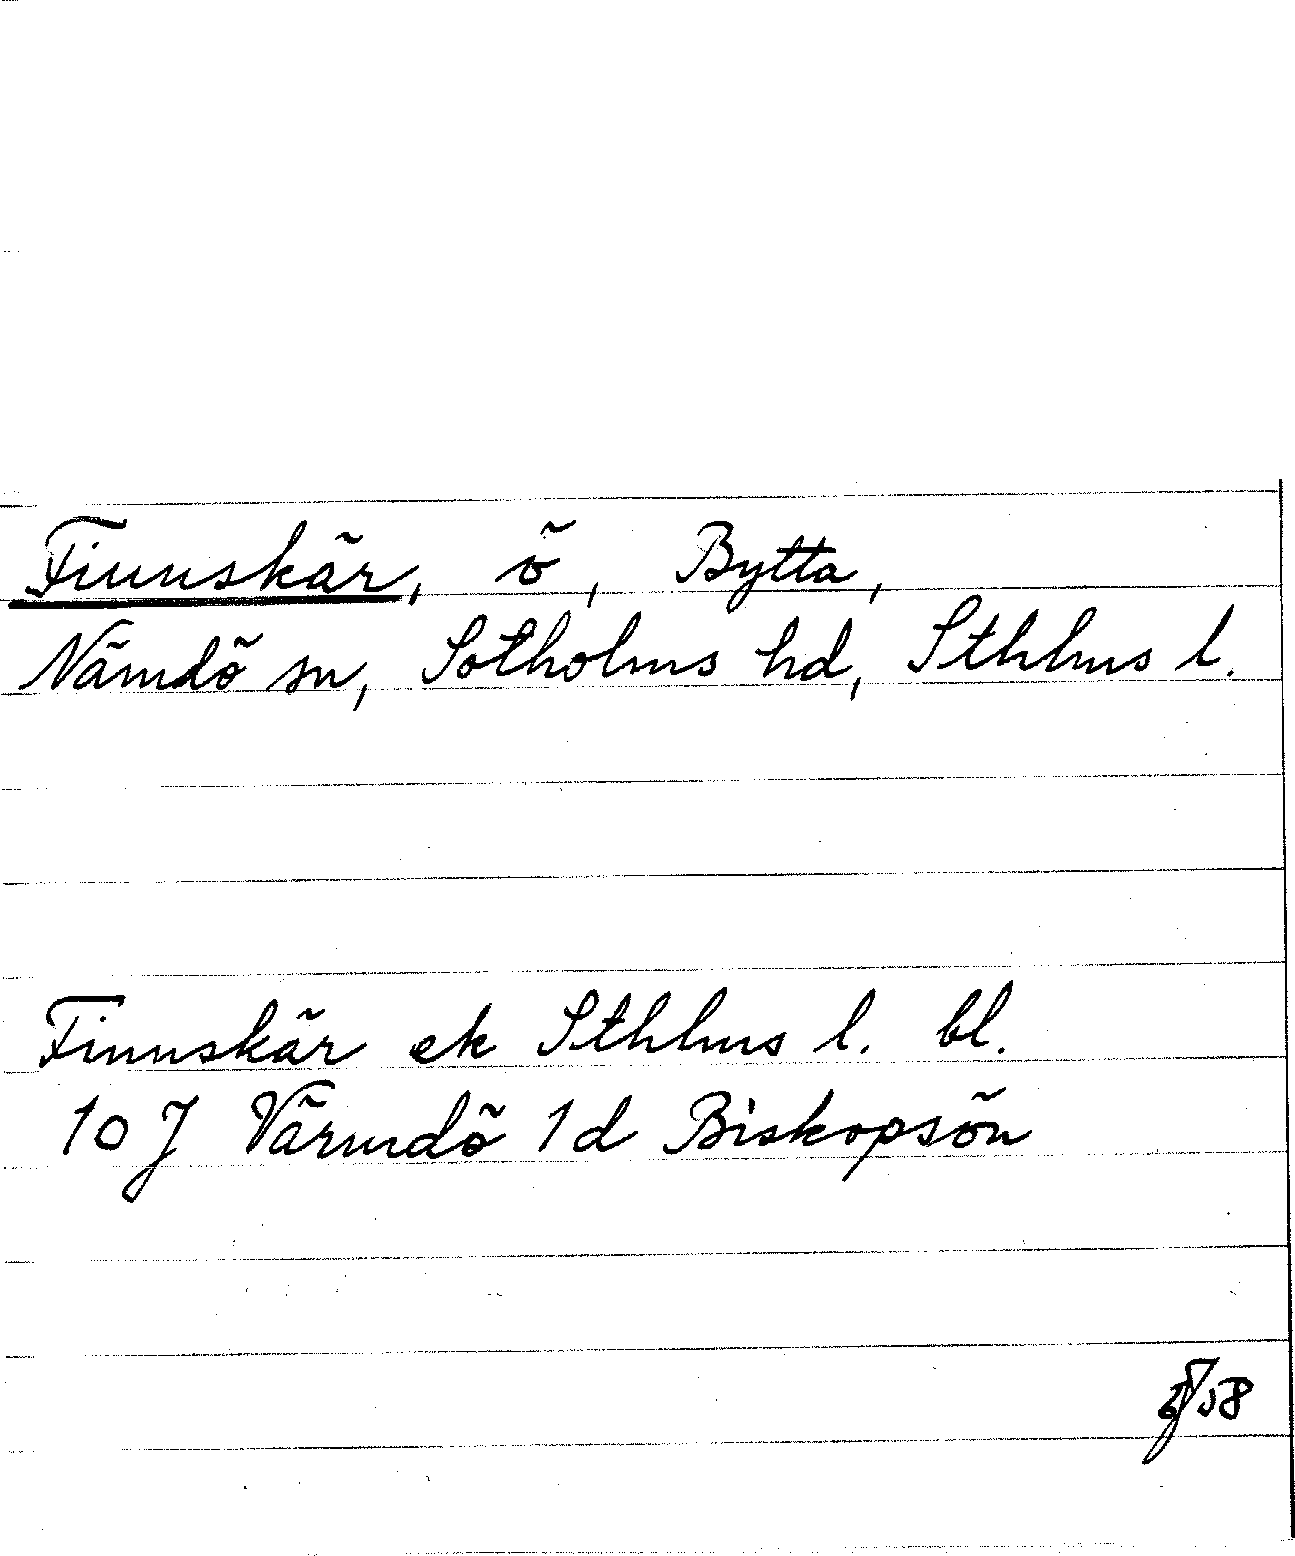 Finnskär, ö, Bytta,
Nämdö sn, Sotholms hd, Sthlms l.
Finnskär ek Sthlms l. bl.
10 J Värmdö 1d Biskopsön